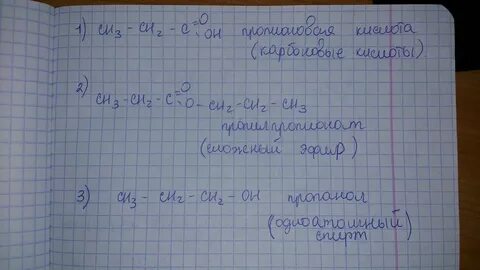 1) CH3 - CH2 - C =O OH пропионовая кислота
(карбоновые кислоты).
2) CH3-CH2-C =O O-CH2-CH2-CH3
пропилпропионат
(сложный эфир)
3) CH3 - CH2 - CH2 - OH пропанол
(одноатомный
спирт)